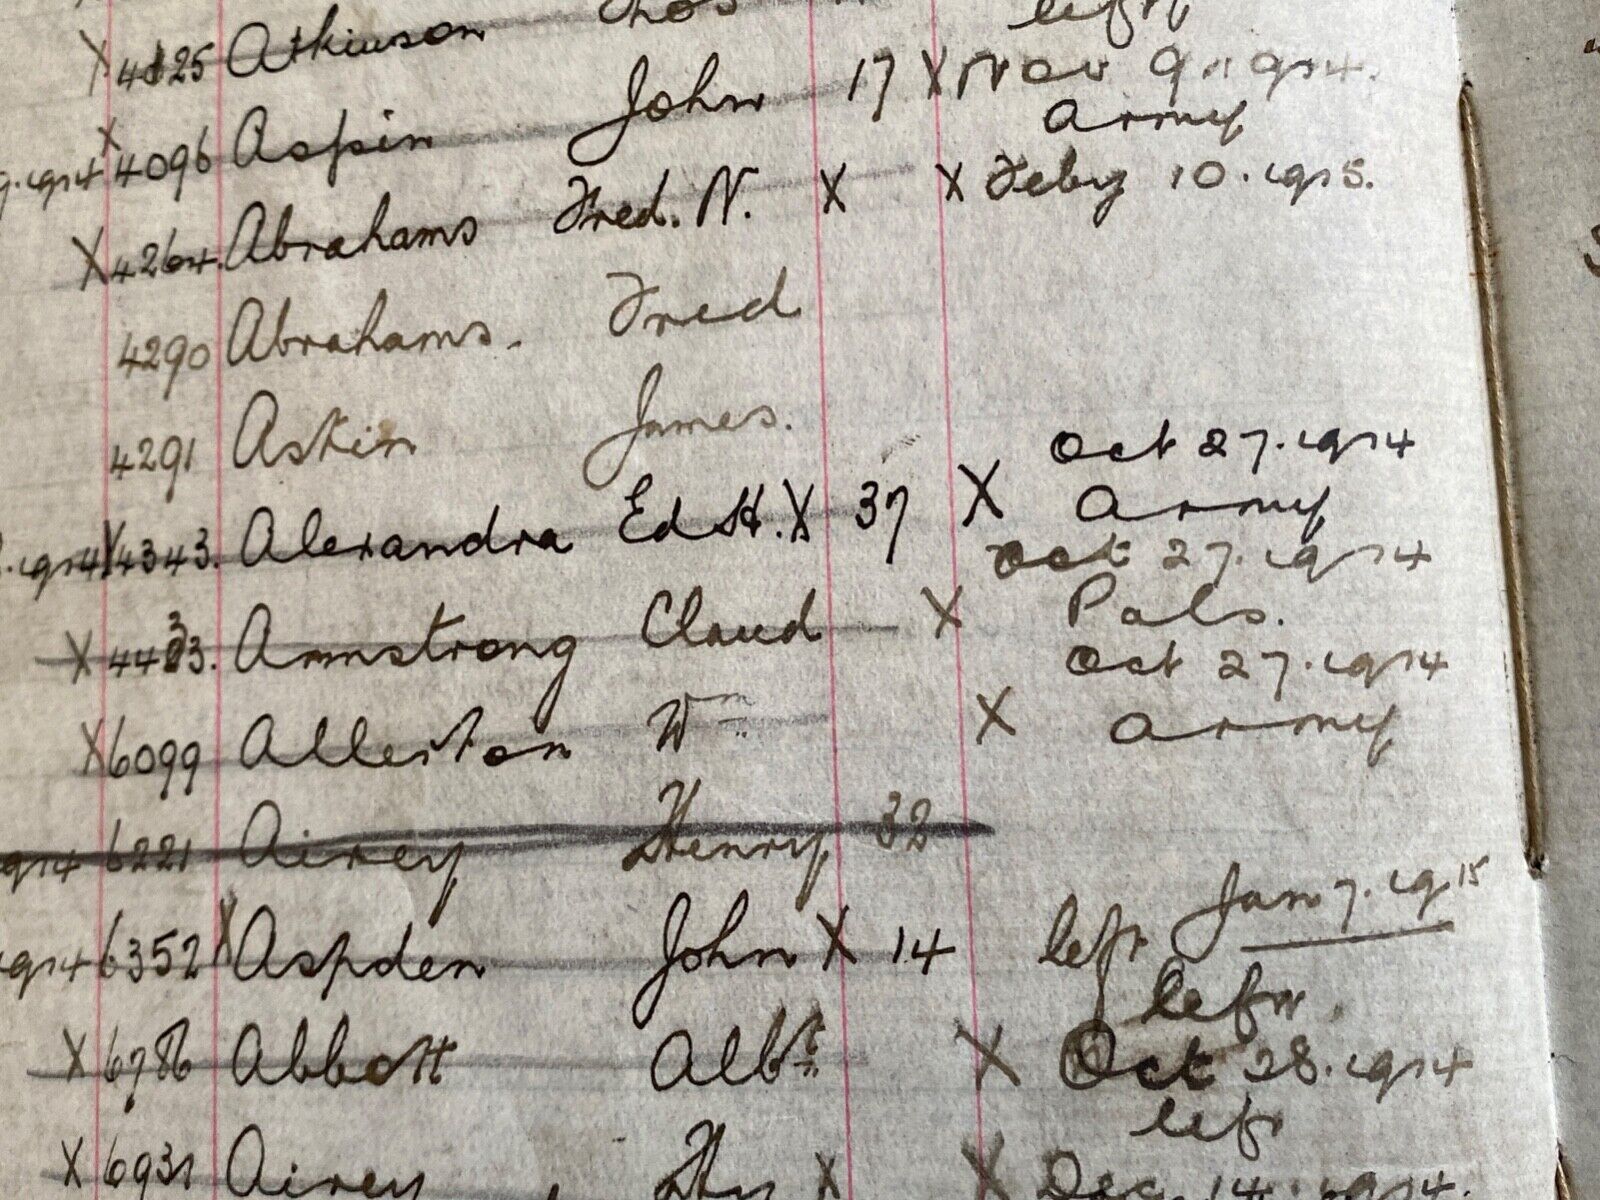 X 4125 Atkinson Thos left
X 4096 Aspin John 17 X Nov 9 1914.
Army
X 4264. Abrahams Fred. N. X X Feby 10. 1915.
4290 Abrahams. Fred
4291 Astin James.
Oct 27. 1914
X 4343. Alexandra Ed H. X 37 X Army
Oct 27. 1914
X Armstrong Claud X Pals.
Oct 27. 1914
X 6099 Allerton Wm X Army
1914 6221 Airey Henry 32
Jan 7. 1915
1914 6352 X Aspden John X 14 left
left
X 6786 Abbott Albt X Oct 28. 1914
left
X 6931 Airey Hy X X Dec. 14. 1914.